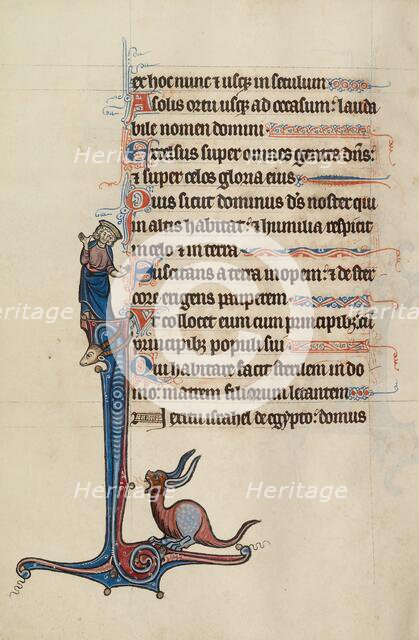 ex hoc nunc et usqȝ in seculum
A solis ortu usqȝ ad occasum: lauda
bile nomen domini
Excelsus super omnes gentes dn̄s:
et super celos gloria eius
Quis sicut dominus ds̄ noster qui
in altis habitat: et humilia respicit
in celo et in terra
Suscitans a terra inopem: et de ster
core erigens pauperem
Vt collocet eum cum principibȝ: cū
principibȝ populi sui
Qui habitare facit sterilem in do
mo: matrem filiorum letantem
In exitu israhel de egypto: domus
Heritage Heritage
Heritage Heritage
Heritage Heritage